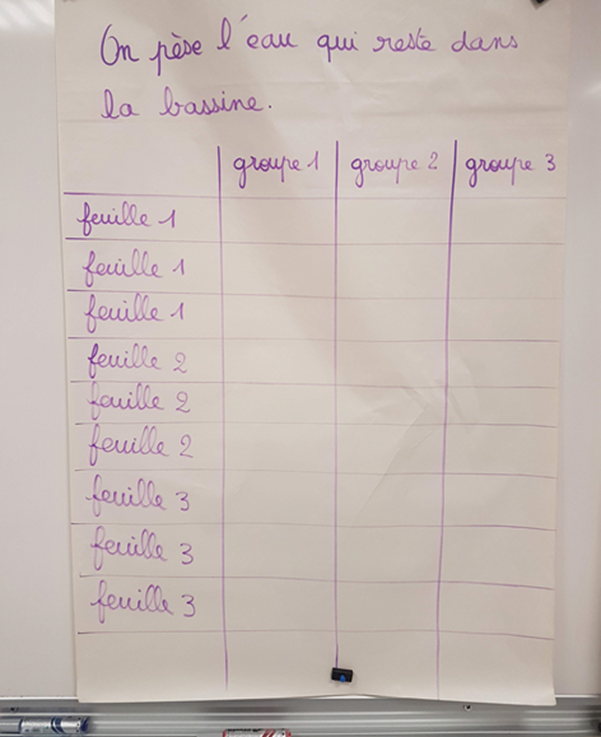 On pèse l'eau qui reste dans
la bassine.
groupe 1 groupe 2 groupe 3
feuille 1
feuille 1
feuille 1
feuille 2
feuille 2
feuille 2
feuille 3
feuille 3
feuille 3